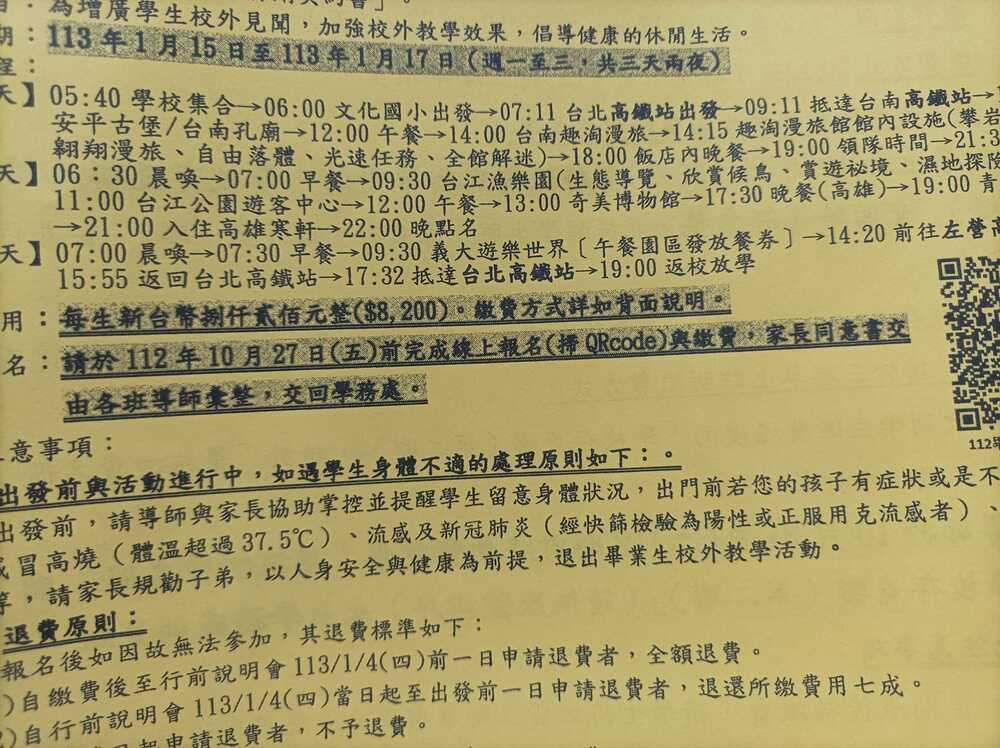 為增廣學生校外見聞，加強校外教學效果，倡導健康的休閒生活。
期：113 年 1 月 15 日至 113 年 1 月 17 日（週一至三，共三天兩夜）
程：
天】05:40 學校集合→06:00 文化國小出發→07:11 台北高鐵站出發→09:11 抵達台南高鐵站→
安平古堡/台南孔廟→12:00 午餐→14:00 台南趣淘漫旅→14:15 趣淘漫旅館館內設施(攀岩
翱翔漫旅、自由落體、光速任務、全館解迷)→18:00 飯店內晚餐→19:00 領隊時間→21:3
天】06：30 晨喚→07:00 早餐→09:30 台江漁樂園(生態導覽、欣賞候鳥、賞遊祕境、濕地探險
11:00 台江公園遊客中心→12:00 午餐→13:00 奇美博物館→17:30 晚餐(高雄)→19:00 青
→21:00 入住高雄寒軒→22:00 晚點名
天】07:00 晨喚→07:30 早餐→09:30 義大遊樂世界〔午餐園區發放餐券〕→14:20 前往左營高
15:55 返回台北高鐵站→17:32 抵達台北高鐵站→19:00 返校放學
用：每生新台幣捌仟貳佰元整($8,200)。繳費方式詳如背面說明。
名：請於 112 年 10 月 27 日(五)前完成線上報名(掃 QRcode)與繳費，家長同意書交
由各班導師彙整，交回學務處。
112
意事項：
出發前與活動進行中，如遇學生身體不適的處理原則如下：。
出發前，請導師與家長協助掌控並提醒學生留意身體狀況，出門前若您的孩子有症狀或是不
冒高燒（體溫超過 37.5℃）、流感及新冠肺炎（經快篩檢驗為陽性或正服用克流感者）、
等，請家長規勸子弟，以人身安全與健康為前提，退出畢業生校外教學活動。
退費原則：
報名後如因故無法參加，其退費標準如下：
)自繳費後至行前說明會 113/1/4(四)前一日申請退費者，全額退費。
)自行前說明會 113/1/4(四)當日起至出發前一日申請退費者，退還所繳費用七成。
日起申請退費者，不予退費。